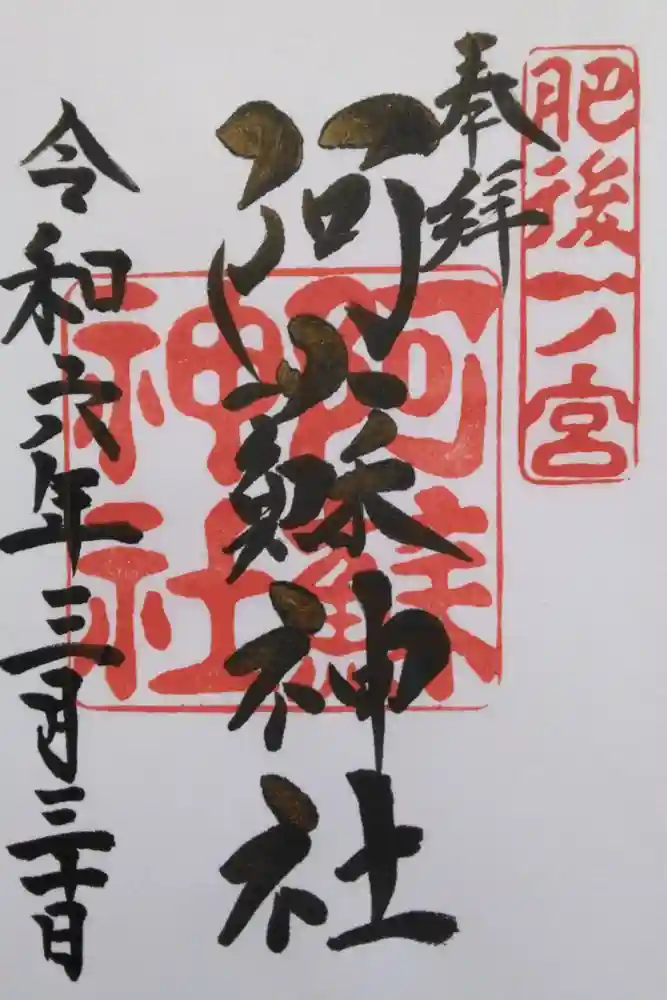 肥後一ノ宮
奉拝
阿蘇神社
阿蘇
神社
令和六年三月三十日